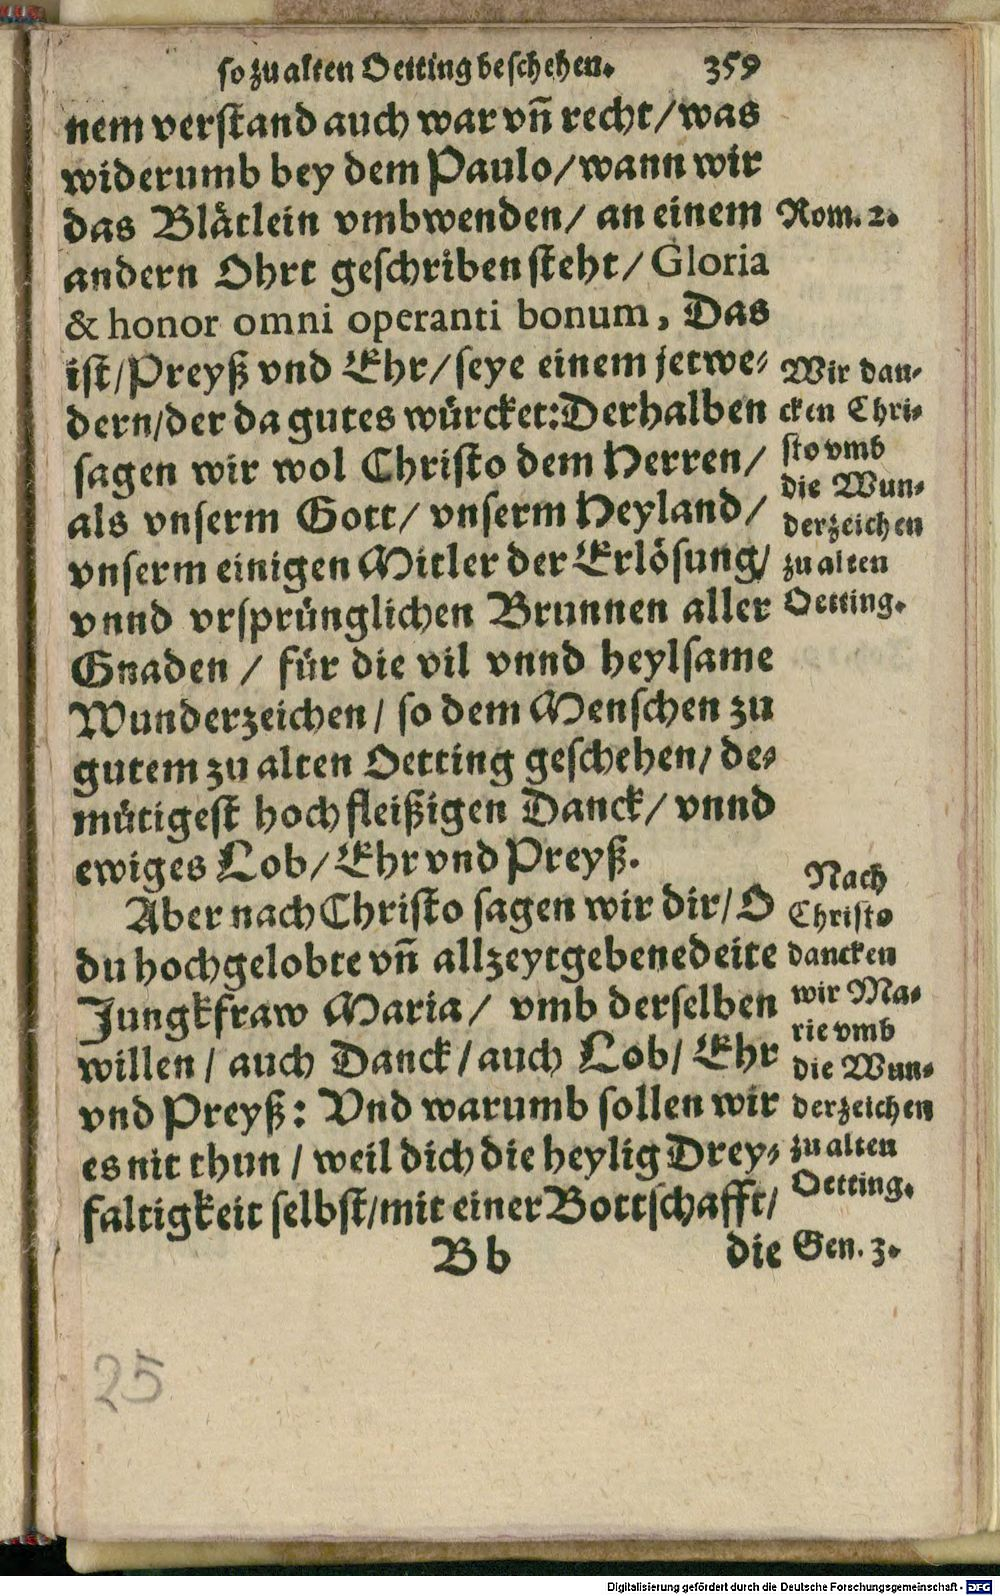 so zu alten Oetting beschehen. 359
nem verstand auch war vñ recht/was
widerumb bey dem Paulo/wann wir
das Blåtlein vmbwenden/ an einem
Rom. 2.
andern Ohrt geschriben steht/ Gloria
& honor omni operanti bonum, Das
ist/Preyß vnd Ehr/seye einem jetwe-
dern/der da gutes würcket:Derhalben
sagen wir wol Christo dem Herren/
als vnserm Gott/ vnserm Heyland/
vnserm einigen Mitler der Erlösung/
vnnd vrsprünglichen Brunnen aller
Wir dan-
cken Chri-
sto vmb
die Wun-
derzeichen
zu alten
Oetting.
Gnaden / für die vil vnnd heylsame
Wunderzeichen/ so dem Menschen zu
gutem zu alten Oetting geschehen/ de-
mütigest hochfleißigen Danck/ vnnd
ewiges Lob/ Ehr vnd Preyß.
Aber nach Christo sagen wir dir/ O
du hochgelobte vñ allzeytgebenedeite
Jungkfraw Maria/ vmb derselben
willen/ auch Danck/auch Lob/ Ehr
vnd Preyß: Vnd warumb sollen wir
es nit thun / weil dich die heylig Drey-
faltigkeit selbst/mit einer Bottschafft/
Nach
Christo
dancken
wir Ma-
rie vmb
die Wun-
derzeichen
zu alten
Oetting.
Gen. 3.
Bb die
25
Digitalisierung gefördert durch die Deutsche Forschungsgemeinschaft - DFG